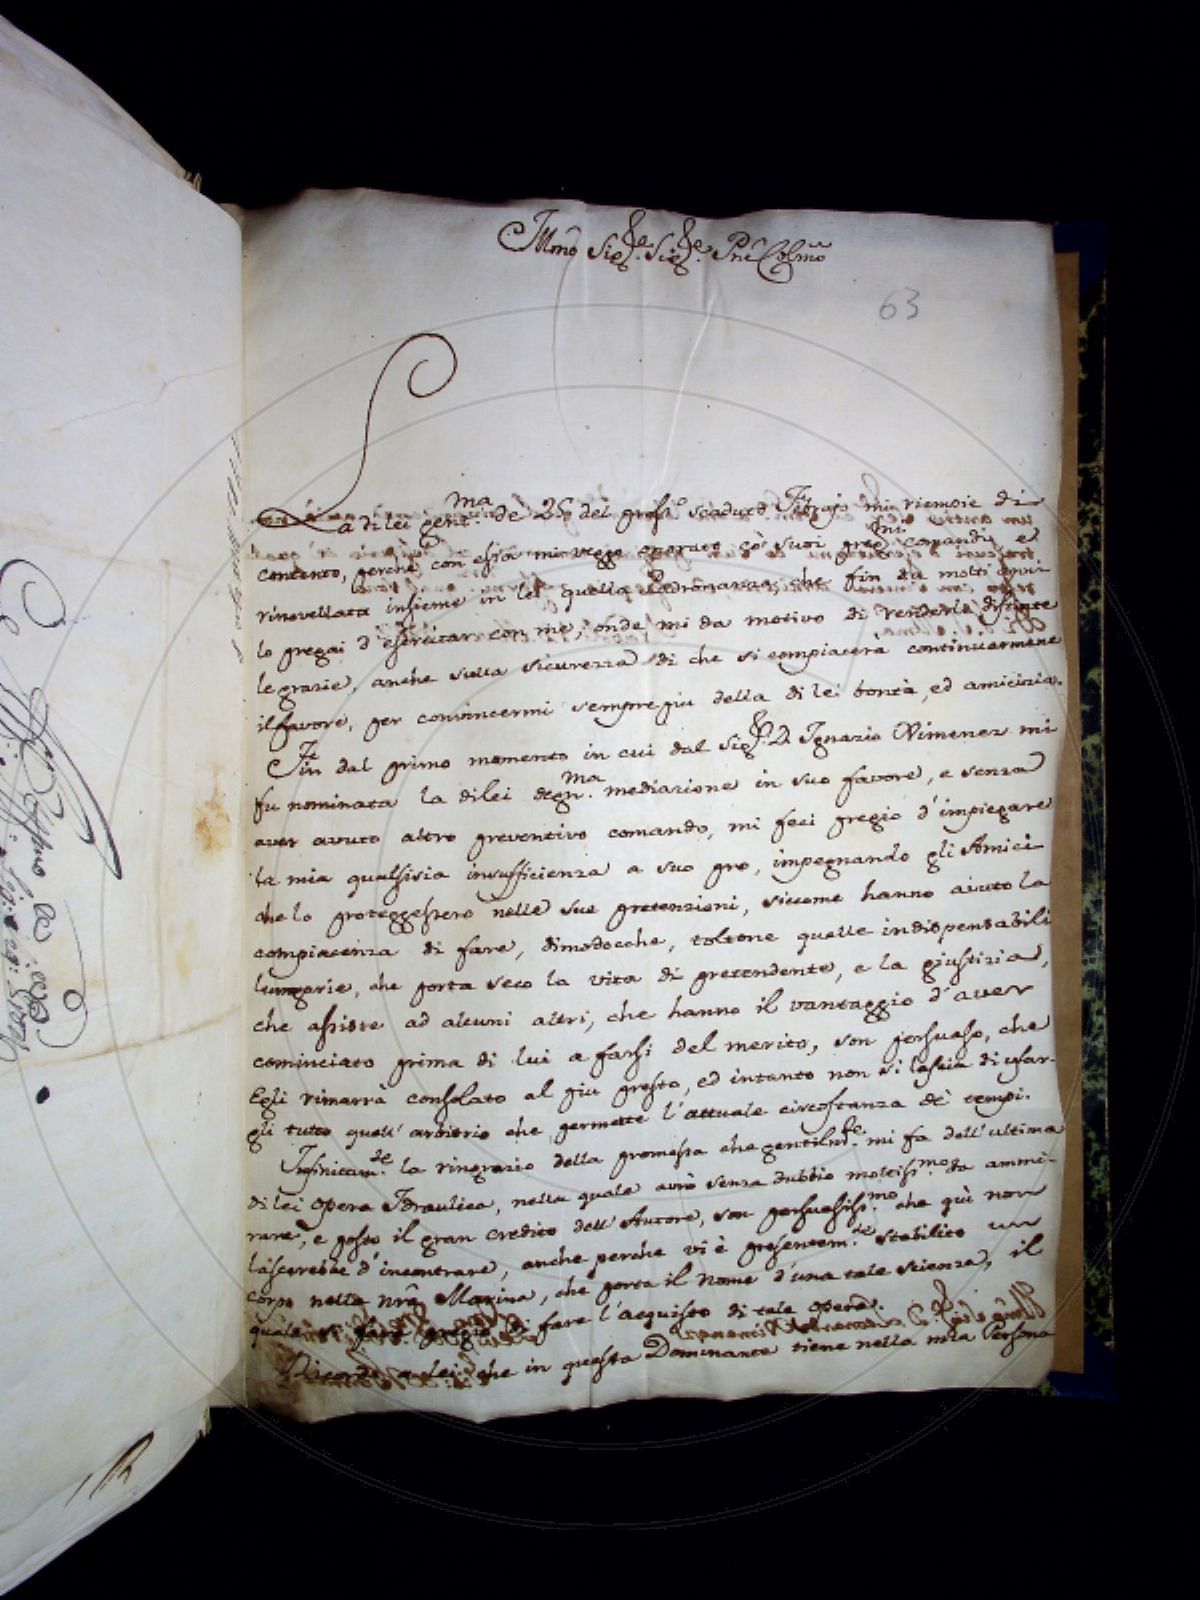 Illmo Sig.re Sig.re Prne Colmo
63
La di lei gent.ma de 25 del pross.o scaduto Febrajo mi riempie di
contento, perche con essa mi veggo onorato co' suoi preg.mi comandi, e
rinovellata insieme in lei quella Padronanza, che fin da molti anni
lo pregai d'esercitar con me, onde mi da motivo di renderle distinte
le grazie, anche sulla sicurezza di che si compiacerà continuarmene
il favore, per convincermi sempre più della di lei bontà, ed amicizia.
Fin dal primo momento in cui dal Sig.r D. Ignazio Ximenez mi
fu nominata la di lei degn.ma mediazione in suo favore, e senza
aver avuto altro preventivo comando, mi feci pregio d'impiegare
la mia qualsisia insufficienza a suo pro, impegnando gli Amici
che lo proteggessero nelle sue pretenzioni, siccome hanno aiuto la
compiacenza di fare, dimodocche, toltone quelle indispensabili
lungarie, che porta seco la vita di pretendente, e la giustizia,
che assiste ad alcuni altri, che hanno il vantaggio d'aver
cominciato prima di lui a farsi del merito, son persuaso, che
Egli rimarrà consolato al più presto, ed intanto non si lascia di usar-
gli tutto quell'arbitrio che permette l'attuale circostanza de' tempi.
Infinitam.te la ringrazio della promessa che gentilm.te mi fa dell'ultima
di lei opera Idraulica, nella quale avrò senza dubbio moltiss.mo da ammi-
rare, e posto il gran credito dell'Autore, son persuasiss.mo che quì non
lascerebbe d'incontrare, anche perche vi è presentem.te stabilito un
corpo nella nrã Marina, che porta il nome d'una tale scienza, il
quale si farà pregio di fare l'acquisto di tale opera.
Ricordo a lei che in questa Dominante tiene nella mia Persona